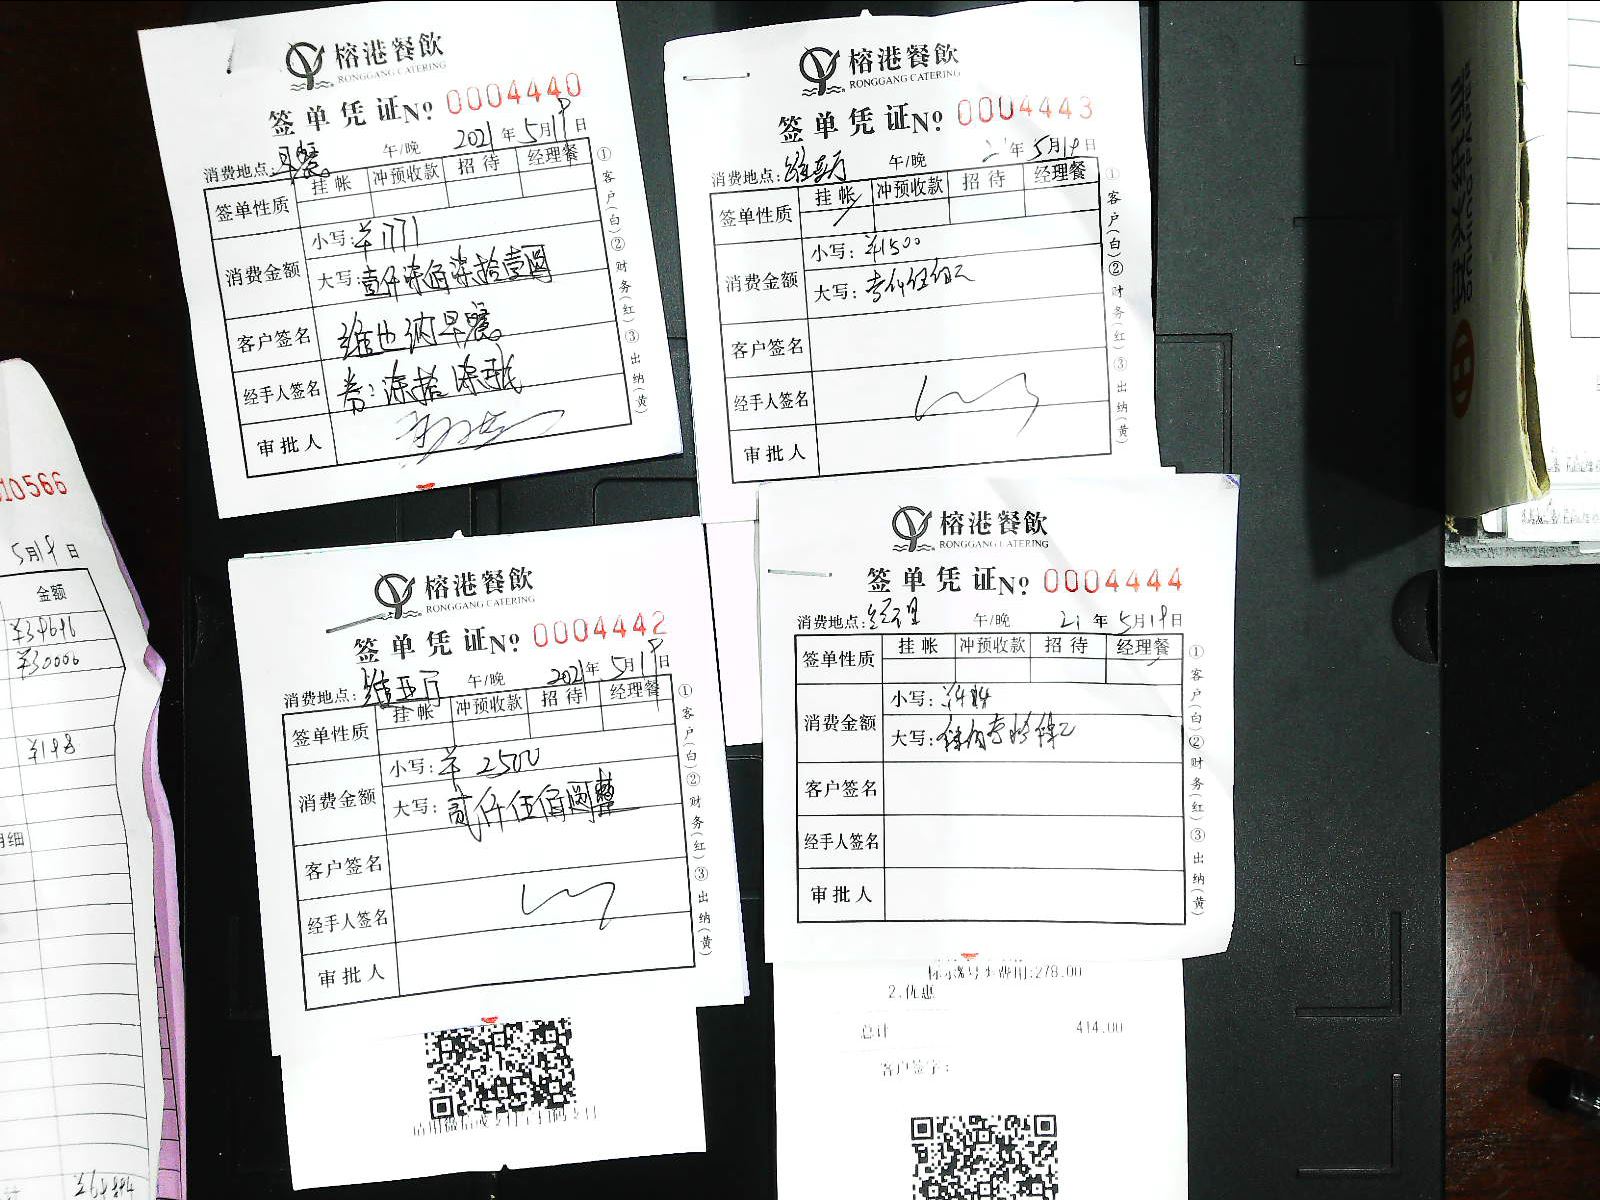 榕港餐飲
RONGGANG CATERING
签单凭证№ 0004440
2021年5月19日
消费地点:早餐 午/晚
签单性质 挂帐 冲预收款 招待 经理餐
消费金额 小写:¥1771
大写:壹仟柒佰柒拾壹圆
客户签名 维也纳早餐
经手人签名 券:柒拾柒张
审批人
①客户(白)②财务(红)③出纳(黄)
榕港餐飲
RONGGANG CATERING
签单凭证№ 0004443
消费地点:维亚厅 午/晚 21年5月19日
签单性质 挂帐 冲预收款 招待 经理餐
消费金额 小写:¥1500
大写:壹仟伍佰元
客户签名
经手人签名
审批人
①客户(白)②财务(红)③出纳(黄)
榕港餐飲
RONGGANG CATERING
签单凭证№ 0004442
消费地点:维亚厅 午/晚 2021年5月19日
签单性质 挂帐 冲预收款 招待 经理餐
消费金额 小写:¥2500
大写:贰仟伍佰圆整
客户签名
经手人签名
审批人
①客户(白)②财务(红)③出纳(黄)
榕港餐飲
RONGGANG CATERING
签单凭证№ 0004444
消费地点:经理 午/晚 21年5月19日
签单性质 挂帐 冲预收款 招待 经理餐
消费金额 小写:¥414
大写:肆佰壹拾肆元
客户签名
经手人签名
审批人
①客户(白)②财务(红)③出纳(黄)
:278.00
2.优惠
总计 414.00
客户签字:
10566
5月19日
金额
¥30000
¥198
细